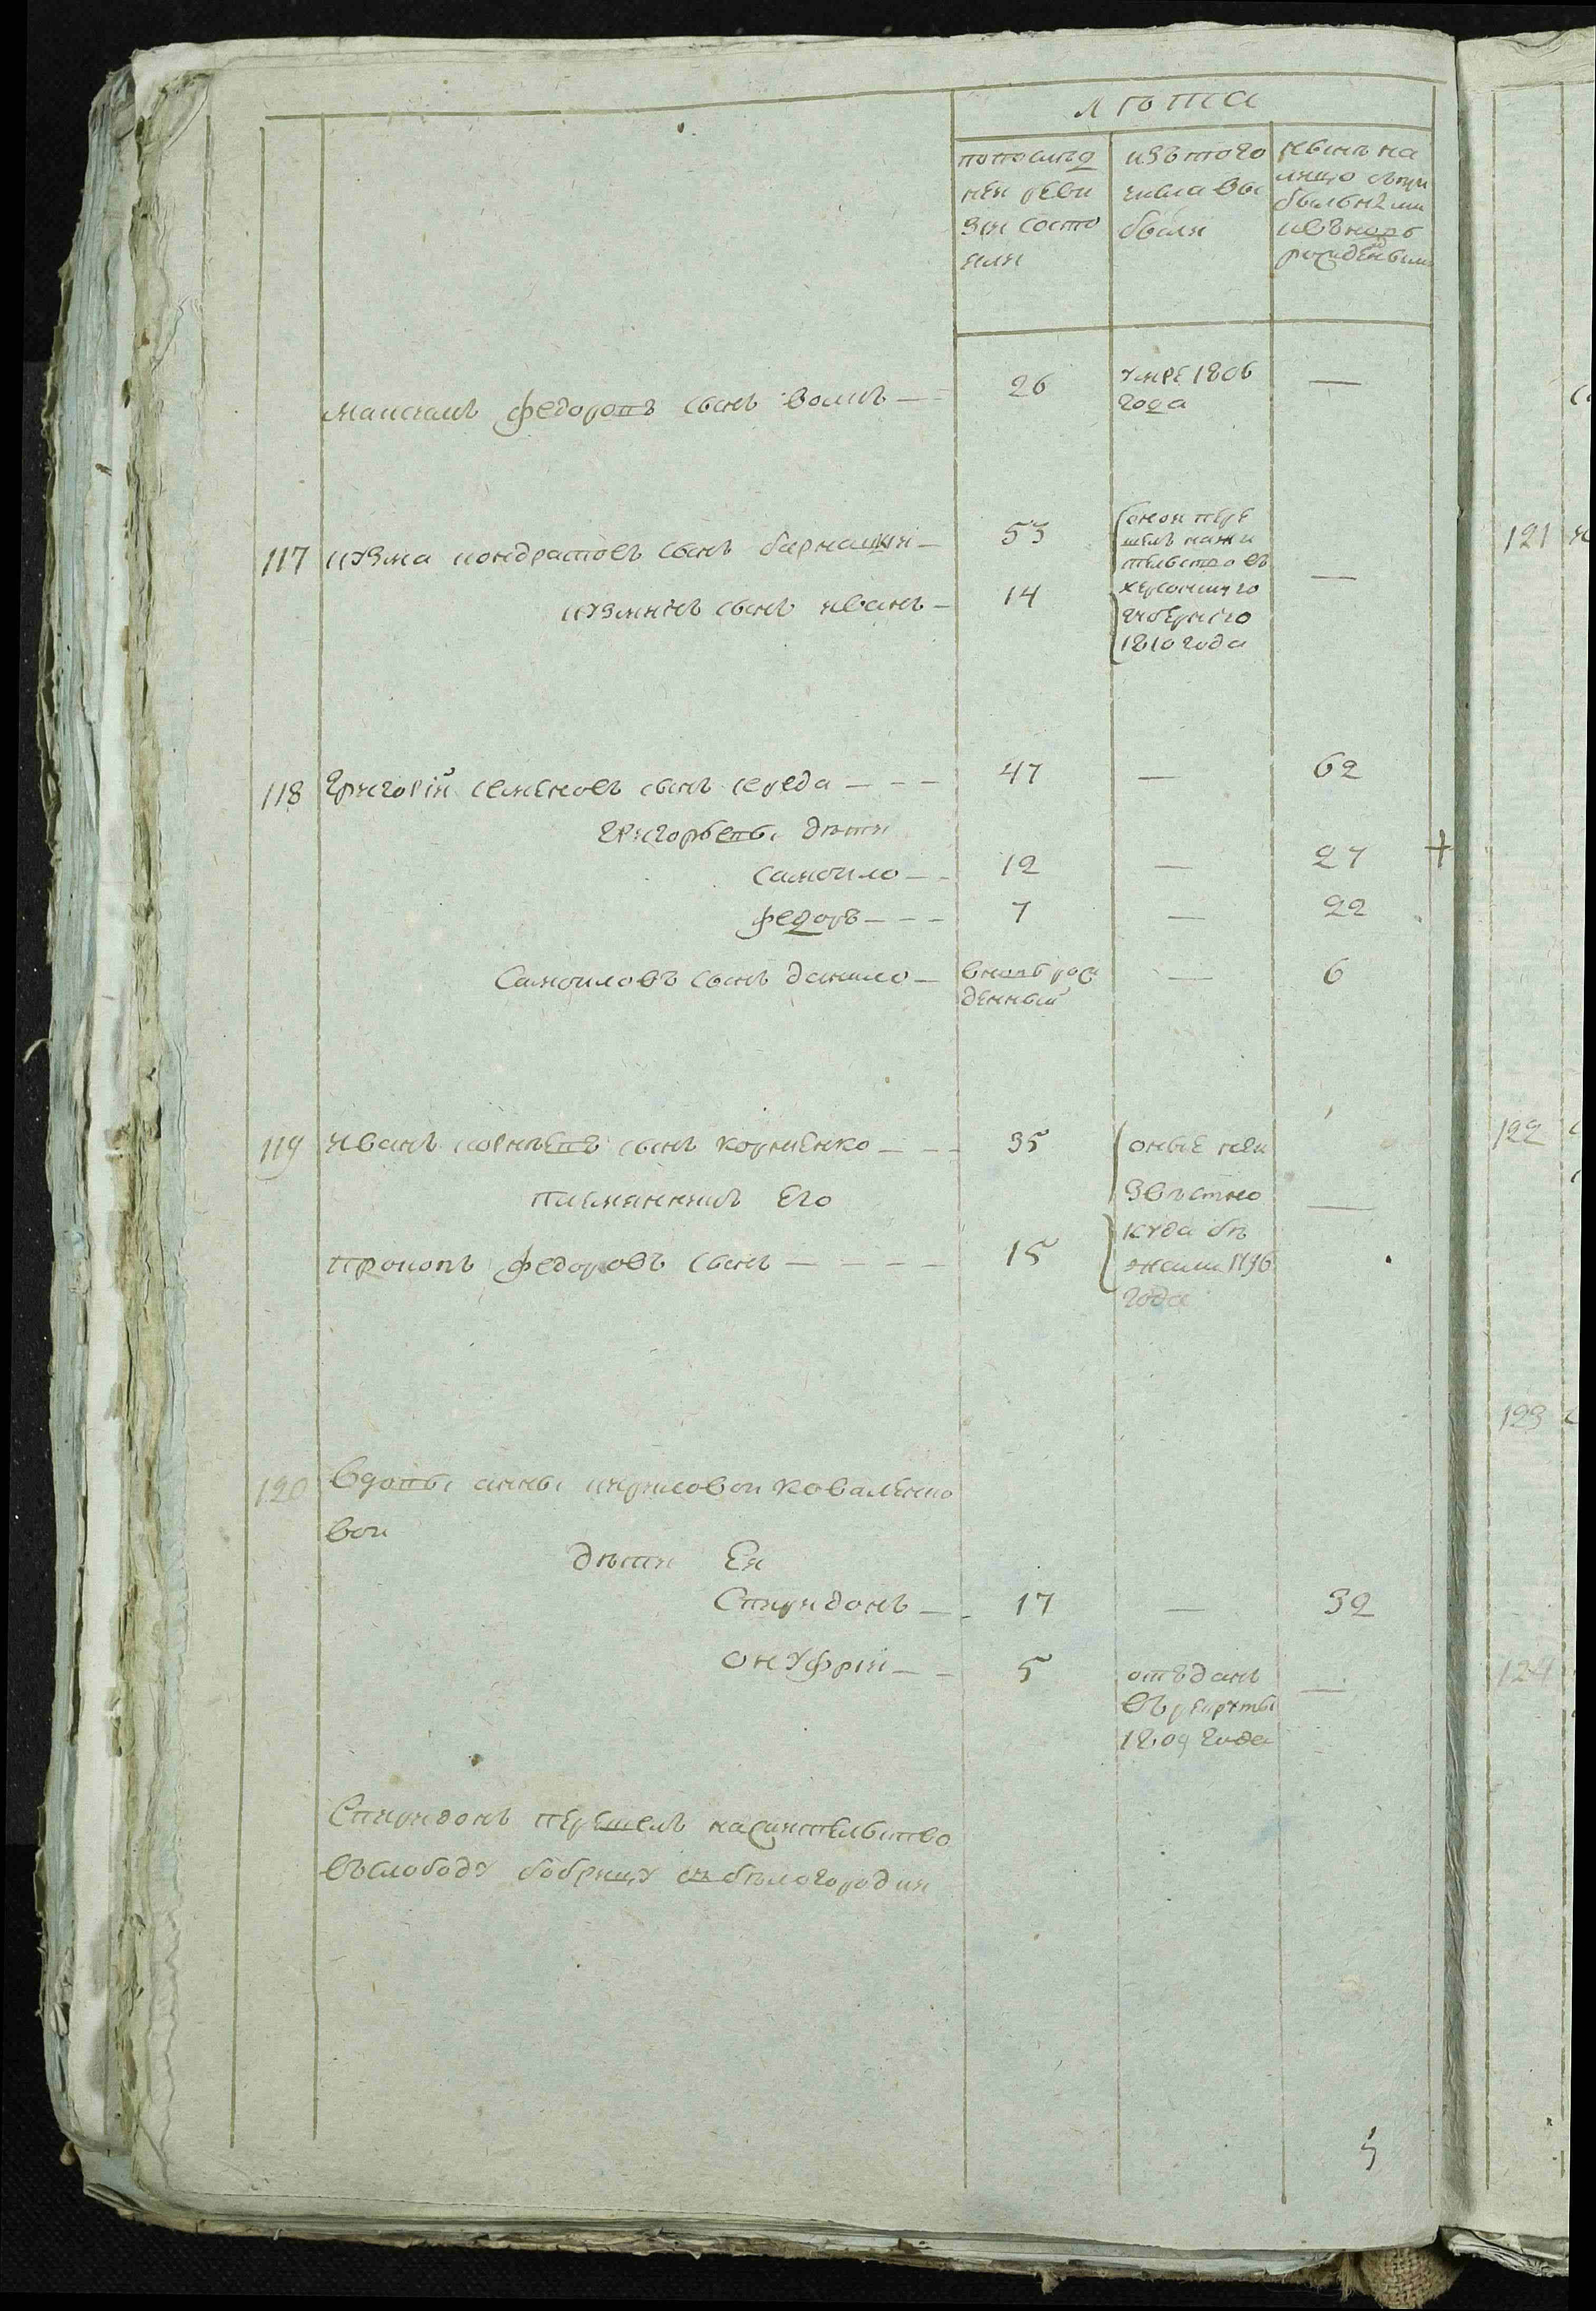 лѣта
попослед
ней реви
зіи состо
яли
изъ того
числа вы
были
нынѣ на
лицо съпри
былыми
ивъновь
рожденными
максимъ федоровъ сынъ волкъ — 26 умре 1806 —
года
117 кузма кондратовъ сынъ барнацкій — 53
кузминъ сынъ иванъ — 14 —
оной пере
шелъ нажи
тельство въ
херсонскую
губернію
1810 года
118 григорій семеновъ сынъ середа — — — 47 — 62
григорьевы дѣти
самоило — — 12 — 27 +
федоръ — — — 7 — 22
самоиловъ сынъ данило — вновь рож — 6
денный
119 иванъ корнѣевъ сынъ корніенко — — — 35
племянникъ его
прокопъ федоровъ сынъ — — — — 15 —
оные неи
звѣстно
куда бѣ
жали 1796
года
120 вдовы анны кириловой коваленко
вой
дѣти ея
спиридонъ — 17 — 32
онуфрій — — 5 —
отъдань
въ рекруты
1809 года
спиридонъ перешелъ нажительство
въслободу бобрицу къ бѣлогородки
5
121
122
123
124